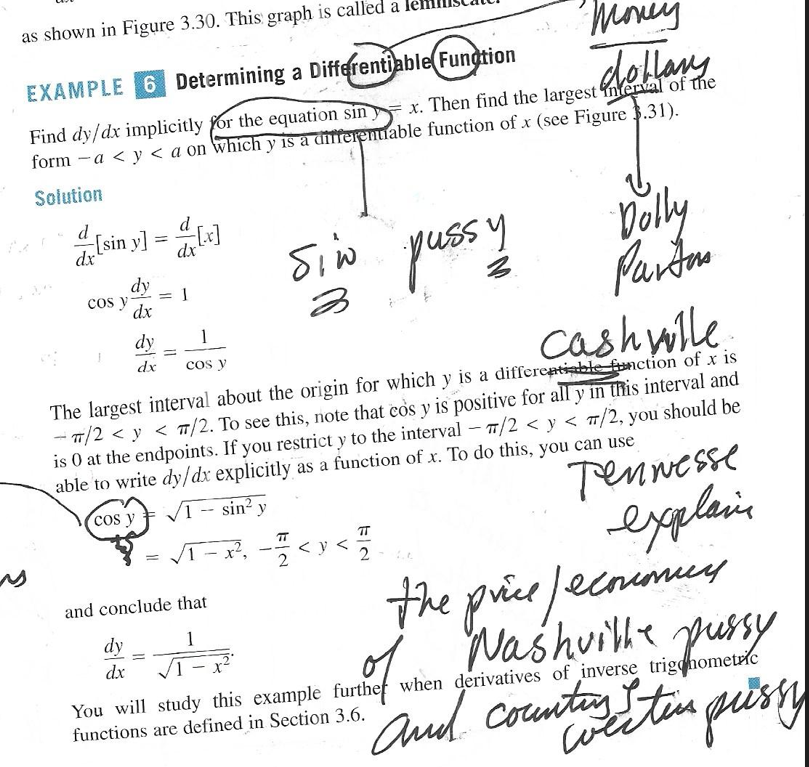 as shown in Figure 3.30. This graph is called a
money
EXAMPLE 6 Determining a Differentiable Function
dollars
Find dy/dx implicitly for the equation sin y = x. Then find the largest interval of the
form −a < y < a on which y is a differentiable function of x (see Figure 3.31).
Solution
d/dx[sin y] = d/dx[x]
Dolly
Parton
sin pussy
cos y dy/dx = 1
dy/dx = 1/cos y
cashville
The largest interval about the origin for which y is a differentiable function of x is
−π/2 < y < π/2. To see this, note that cos y is positive for all y in this interval and
is 0 at the endpoints. If you restrict y to the interval −π/2 < y < π/2, you should be
able to write dy/dx explicitly as a function of x. To do this, you can use
Tennesse
cos y = √1 − sin² y
explain
= √1 − x², −π/2 < y < π/2
the price/economy
and conclude that
of Nashville pussy
dy/dx = 1/√1 − x².
You will study this example further when derivatives of inverse trigonometric
functions are defined in Section 3.6.
and country &
western pussy